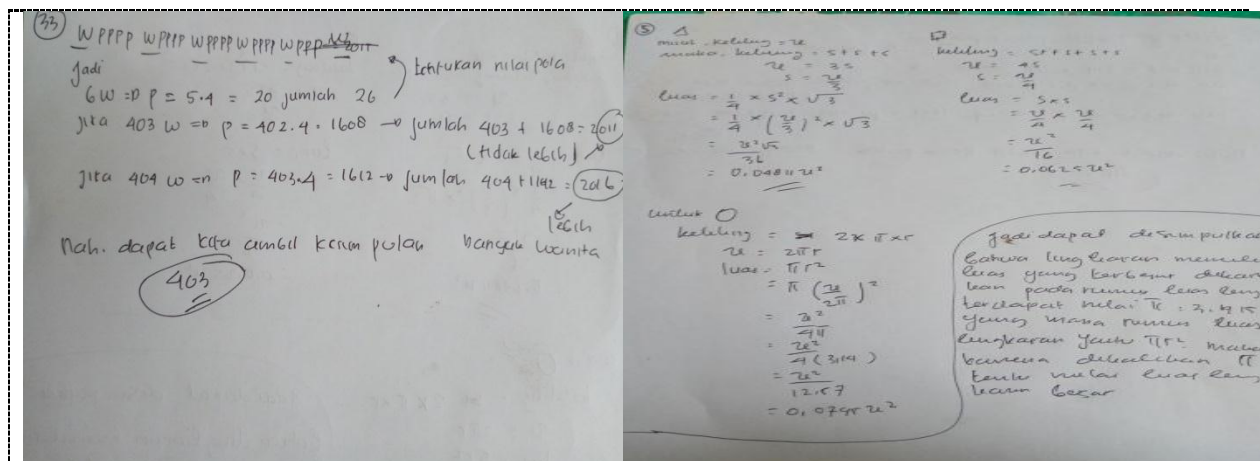 33
W PPPP W PPPP W PPPP W PPPP W PPP
Jadi
tentukan nilai pola
6W => P = 5.4 = 20 jumlah 26
Jika 403 W => P = 402.4 = 1608 -> jumlah 403 + 1608 = 2011
(tidak lebih)
Jika 404 W => P = 403.4 = 1612 -> jumlah 404 + = 2016
lebih
Nah. dapat kita ambil kesimpulan banyak wanita
403
5 △ □
misal keliling = x
maka keliling = s + s + s
x = 3s
s = x/3
luas = 1/4 × s² × √3
= 1/4 × (x/3)² × √3
= x²√3/36
= 0,0481 x²
keliling = s + s + s + s
x = 4s
s = x/4
luas = s × s
= x/4 × x/4
= x²/16
= 0.0625 x²
untuk ○
keliling = 2 × π × r
x = 2πr
luas = πr²
= π (x/2π)²
= x²/4π
= x²/4(3,14)
= x²/12.57
= 0,0795 x²
Jadi dapat disimpulkan
bahwa lingkaran
luas yang terbesar
pada rumus luas
terdapat nilai π
yang mana rumus luas
lingkaran yaitu πr² maka
karena dikalikan π
tentu nilai luas
besar